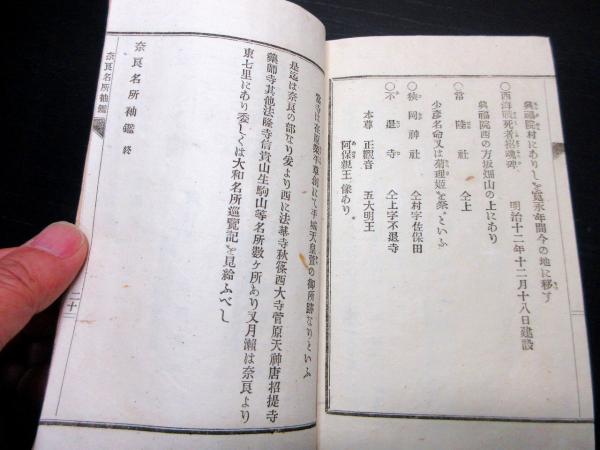 興福院村にありしを寛永年間今の地に移す
〇西海戰死者招魂碑 明治十二年十二月十八日建設
興福院西の方坂畑山の上にあり
〇常陸社 仝上
少彦名命又は菊理姬を祭るといふ
〇狹岡神社 仝村字佐保田
〇不退寺 仝上字不退寺
本尊 正觀音 五大明王
阿保親王像あり
當寺は在原業平草創にて平城天皇萱の御所跡なりといふ
是迄は奈良の部なり爰より西に法華寺秋篠西大寺菅原天神唐招提寺
藥師寺其他法隆寺信貴山生駒山等名所數ケ所あり又月瀨は奈良より
東七里にあり委しくは大和名所巡覽記を見給ふべし
奈良名所袖鑑 終
奈良名所袖鑑
二十